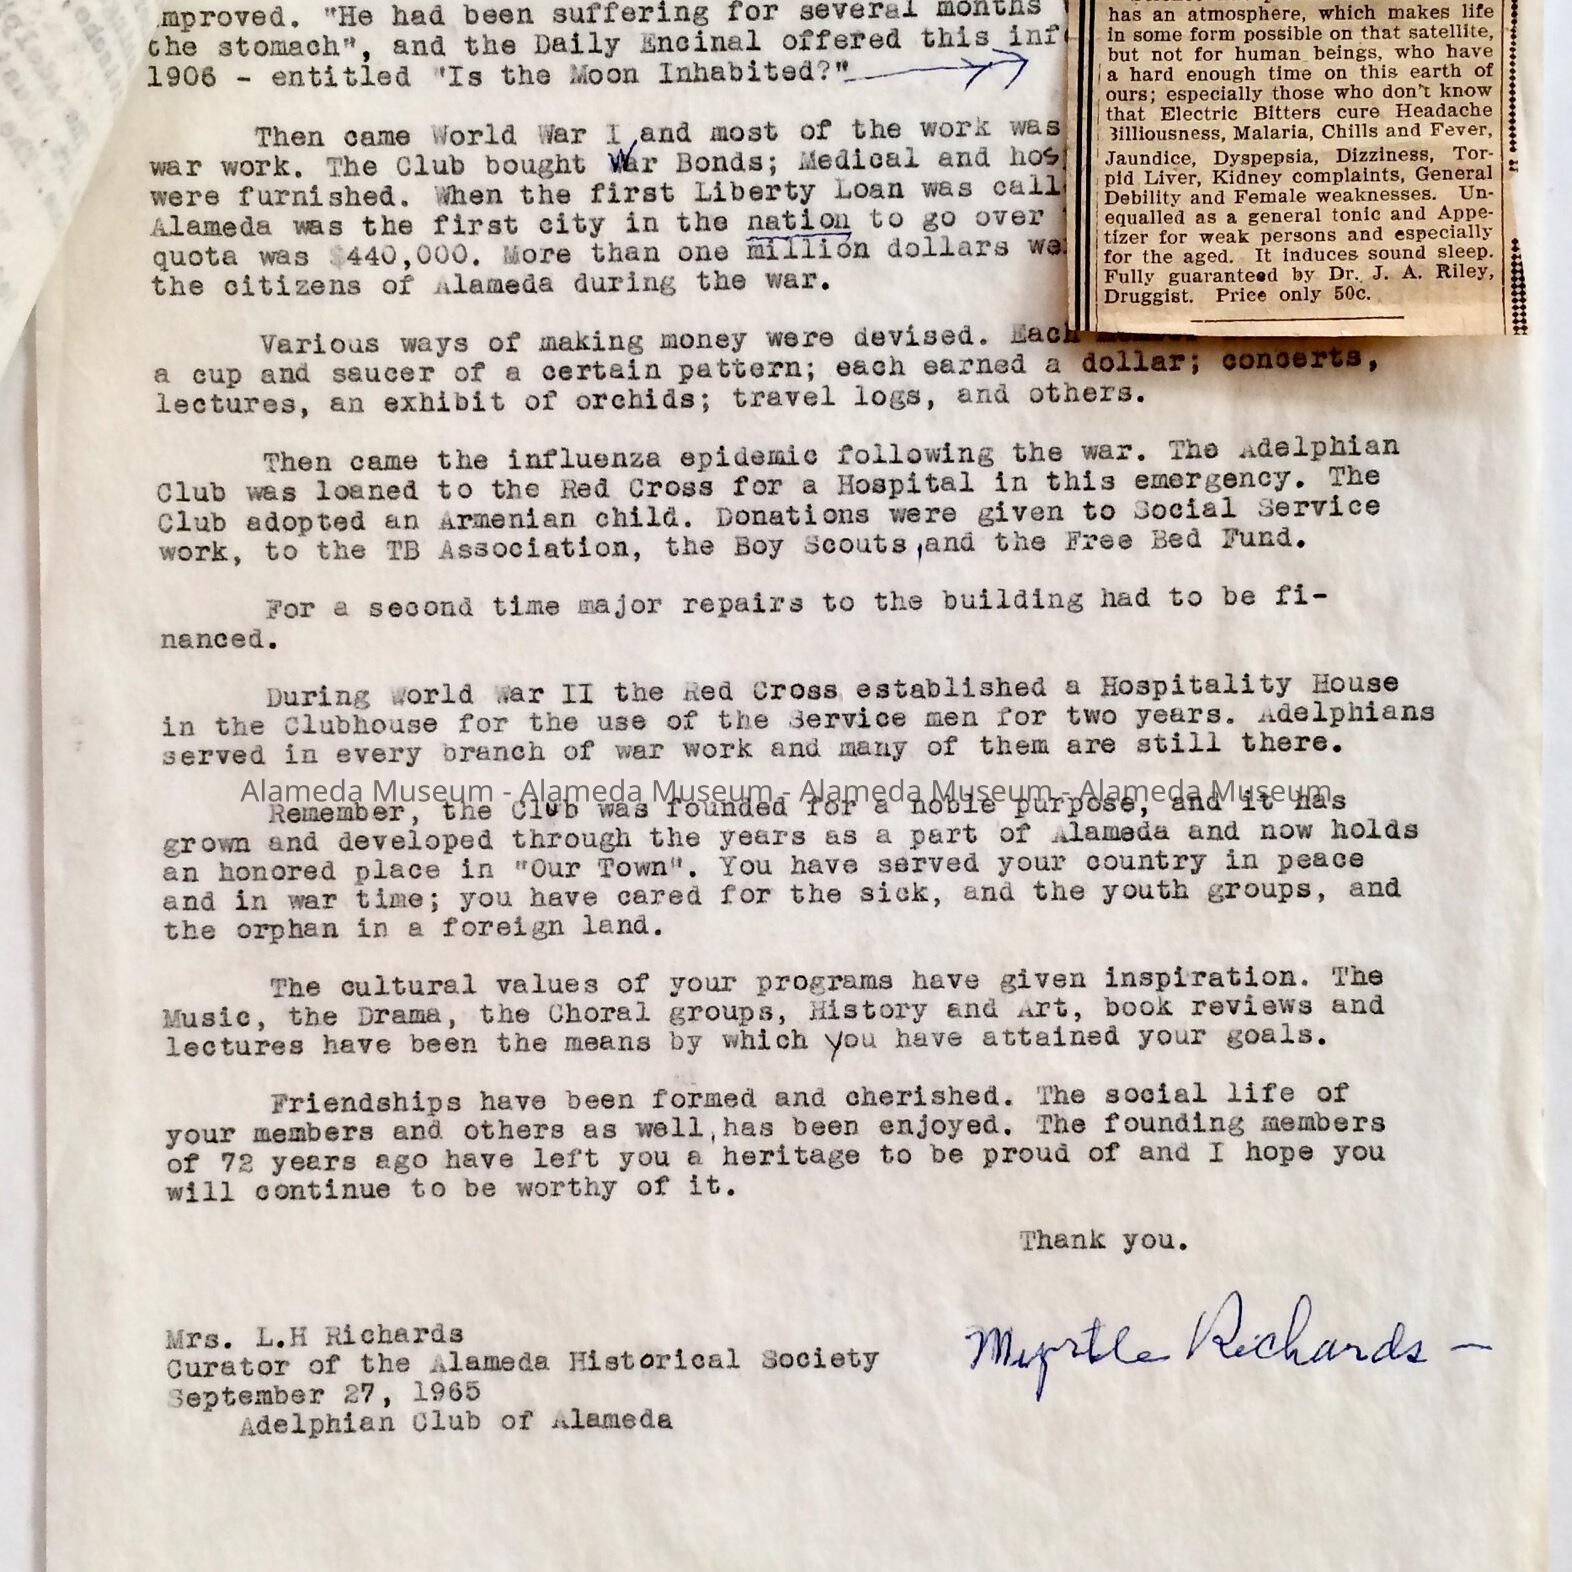 improved. "He had been suffering for several months
the stomach", and the Daily Encinal offered this
1906 - entitled "Is the Moon Inhabited?"
Then came World War I, and most of the work was
war work. The Club bought War Bonds; Medical and
were furnished. When the first Liberty Loan was
Alameda was the first city in the nation to go over
quota was $440,000. More than one million dollars
the citizens of Alameda during the war.
Various ways of making money were devised. Each
a cup and saucer of a certain pattern; each earned a dollar; concerts,
lectures, an exhibit of orchids; travel logs, and others.
Then came the influenza epidemic following the war. The Adelphian
Club was loaned to the Red Cross for a Hospital in this emergency. The
Club adopted an Armenian child. Donations were given to Social Service
work, to the TB Association, the Boy Scouts, and the Free Bed Fund.
For a second time major repairs to the building had to be fi-
nanced.
During World War II the Red Cross established a Hospitality House
in the Clubhouse for the use of the Service men for two years. Adelphians
served in every branch of war work and many of them are still there.
Remember, the Club was founded for a noble purpose, and it has
grown and developed through the years as a part of Alameda and now holds
an honored place in "Our Town". You have served your country in peace
and in war time; you have cared for the sick, and the youth groups, and
the orphan in a foreign land.
The cultural values of your programs have given inspiration. The
Music, the Drama, the Choral groups, History and Art, book reviews and
lectures have been the means by which you have attained your goals.
Friendships have been formed and cherished. The social life of
your members and others as well, has been enjoyed. The founding members
of 72 years ago have left you a heritage to be proud of and I hope you
will continue to be worthy of it.
Thank you.
Myrtle Richards -
Mrs. L.H Richards
Curator of the Alameda Historical Society
September 27, 1965
Adelphian Club of Alameda
has an atmosphere, which makes life
in some form possible on that satellite,
but not for human beings, who have
a hard enough time on this earth of
ours; especially those who don't know
that Electric Bitters cure Headache
Billiousness, Malaria, Chills and Fever,
Jaundice, Dyspepsia, Dizziness, Tor-
pid Liver, Kidney complaints, General
Debility and Female weaknesses. Un-
equalled as a general tonic and Appe-
tizer for weak persons and especially
for the aged. It induces sound sleep.
Fully guaranteed by Dr. J. A. Riley,
Druggist. Price only 50c.
Alameda Museum - Alameda Museum - Alameda Museum - Alameda Museum